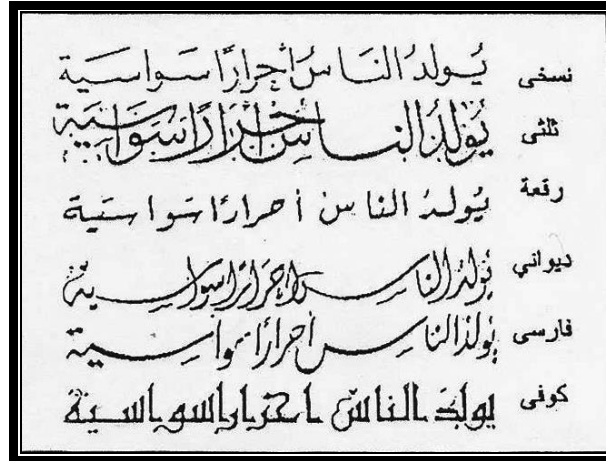 نسخى يُولدُ النَاسُ أحرارًا سَواسية
ثلثى يُولَدُ الناسُ أحْرَارًا سَوَاسيَة
رقعة يُولدُ الناسُ أحرارًا سَواسيَة
ديواني يُولدُ الناسُ احرَارًا سواسية
فارسى يُولدُ الناس أحرارًا سواسية
كوفى يولدَ الناسُ احراراسواسية